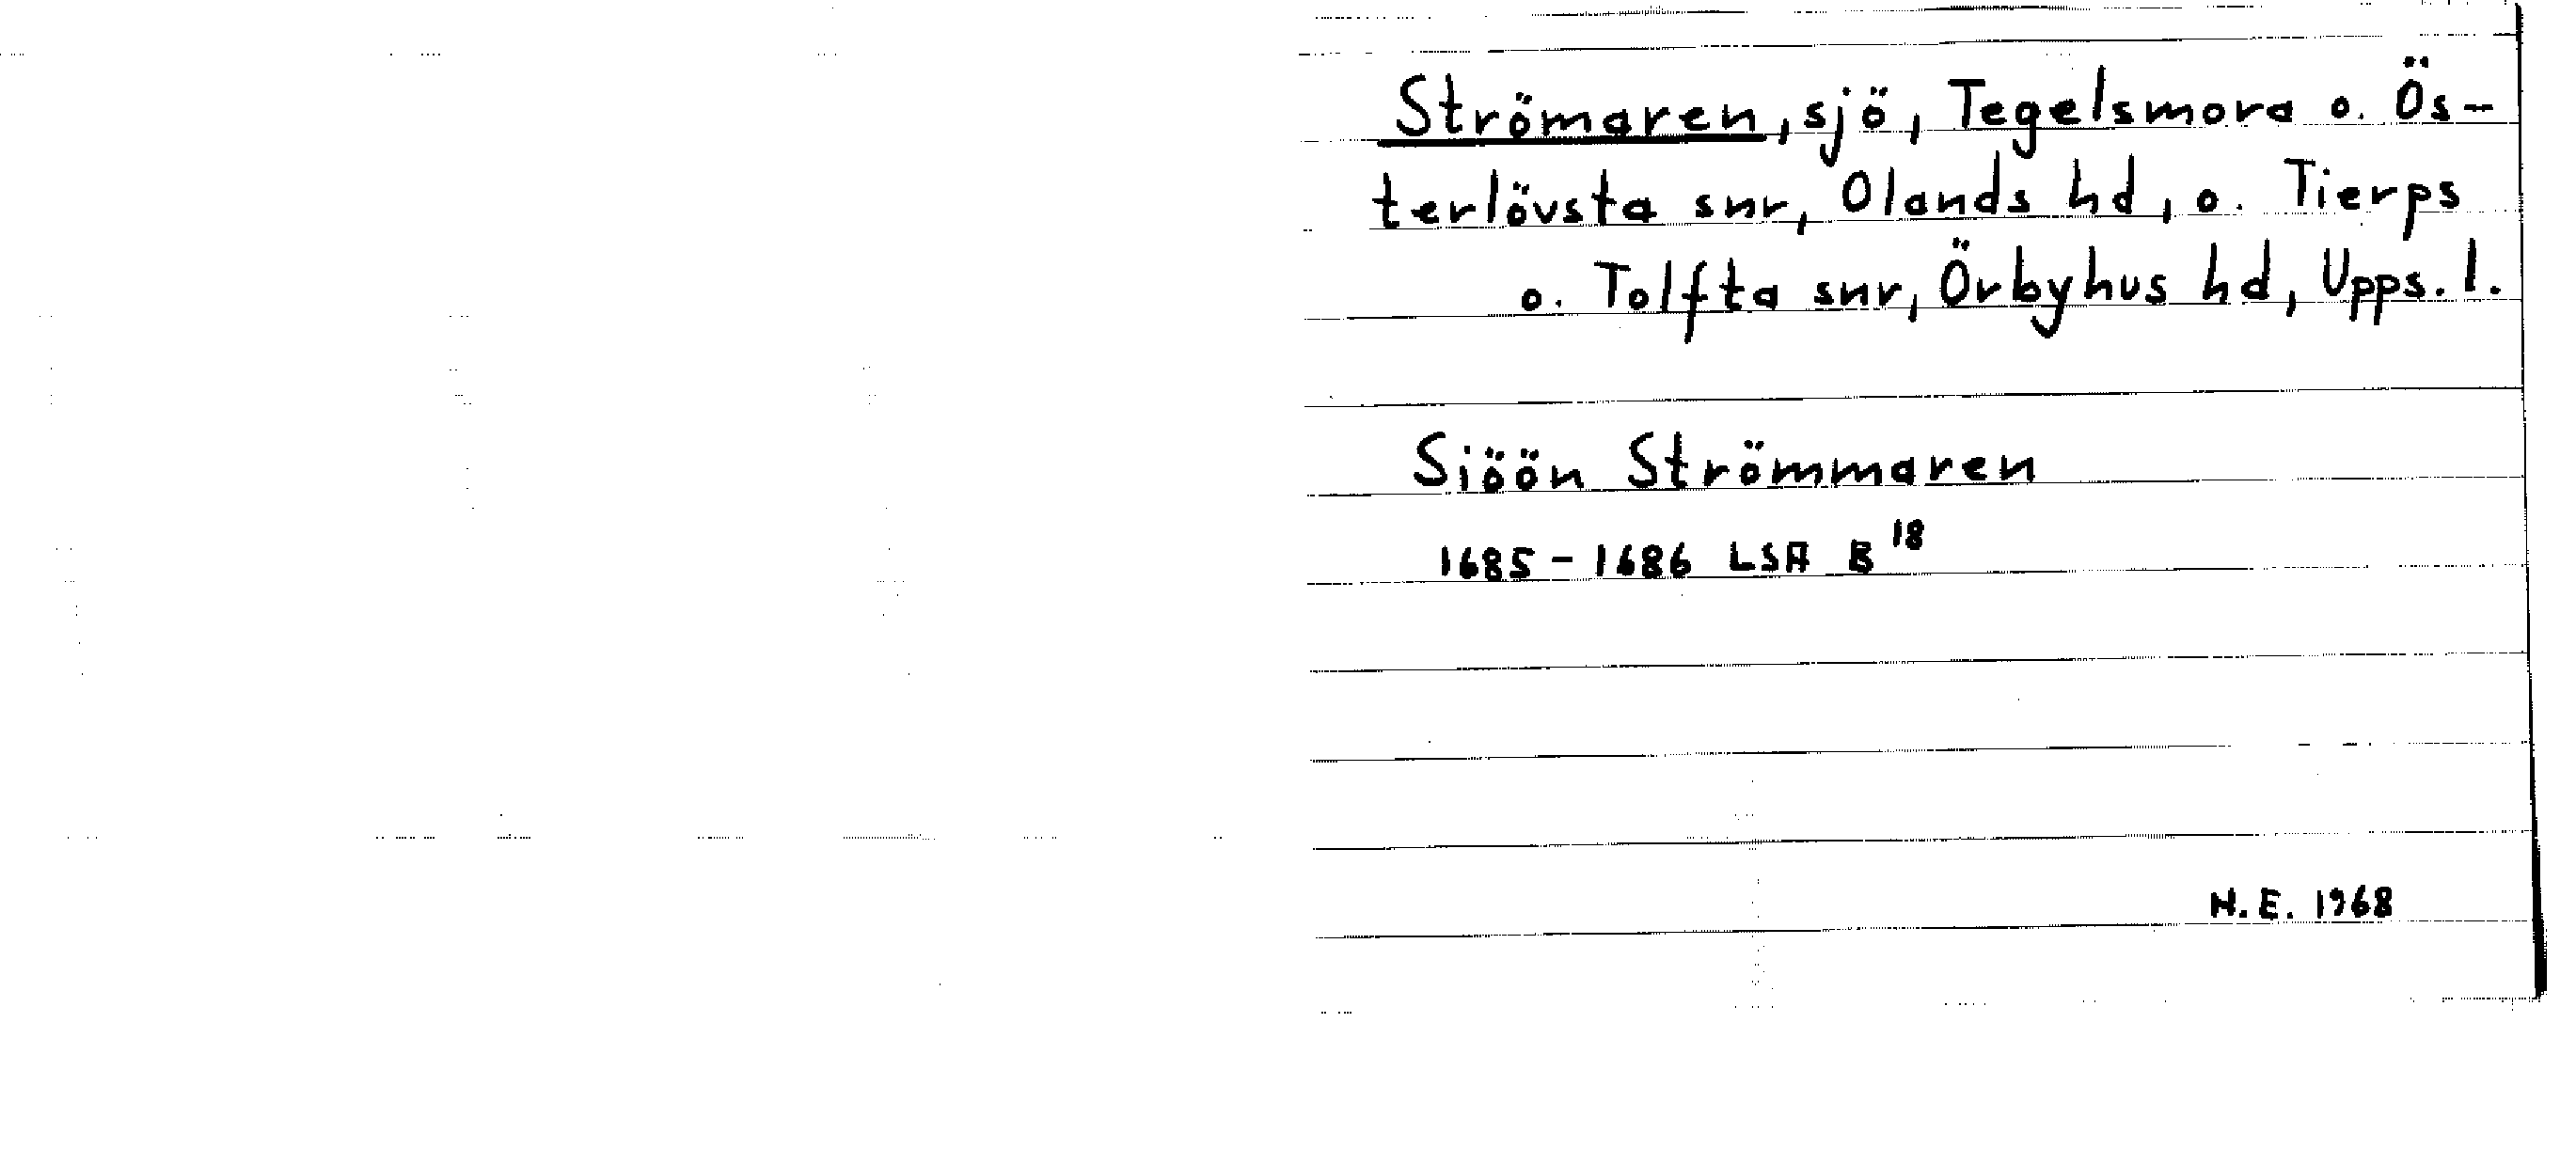 Strömaren, sjö, Tegelsmora o. Ös-
terlövsta snr, Olands hd, o. Tierps
o. Tolfta snr, Örbyhus hd, Upps. l.
Siöön Strömmaren
1685-1686 LSA B 18
H.E. 1968